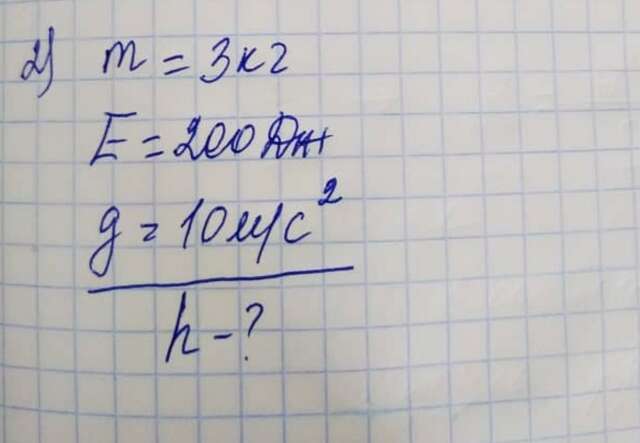 2) m = 3кг
E = 200 Дж
g = 10 м/с²
h - ?